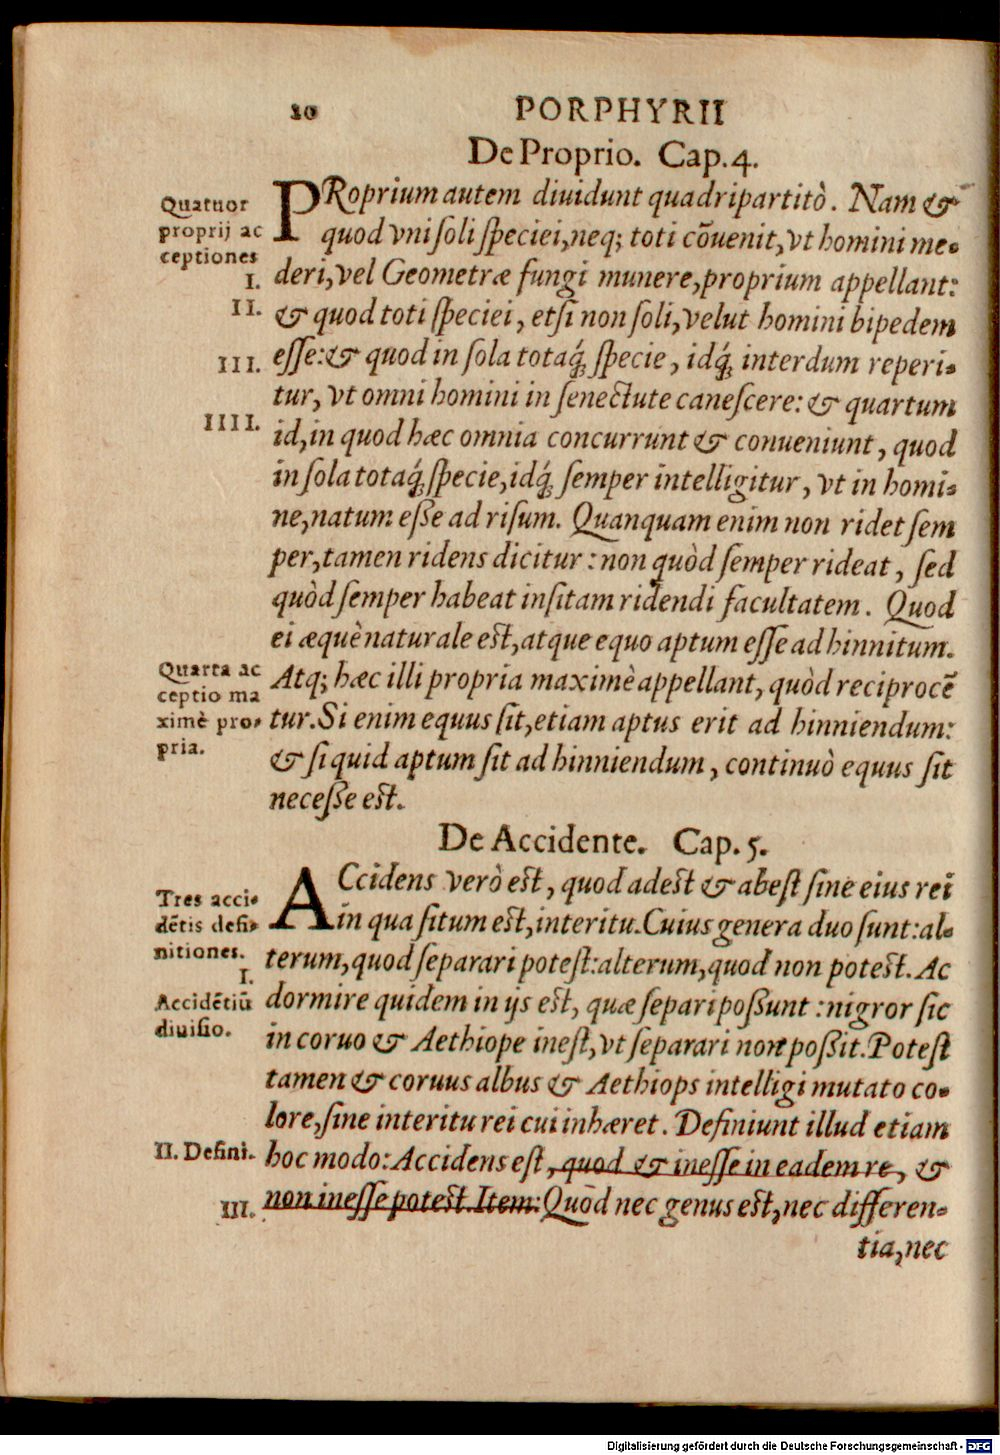 20 PORPHYRII
De Proprio. Cap. 4.
Quatuor
proprij ac
ceptiones
I.
II.
III.
IIII.
PRoprium autem diuidunt quadripartitò. Nam &
quod vni soli speciei, neq; toti cōuenit, vt homini me-
deri, vel Geometræ fungi munere, proprium appellant:
& quod toti speciei, etsi non soli, velut homini bipedem
esse: & quod in sola totaq́; specie, idq́; interdum reperi-
tur, vt omni homini in senectute canescere: & quartum
id, in quod hæc omnia concurrunt & conueniunt, quod
in sola totaq́; specie, idq́; semper intelligitur, vt in homi-
ne, natum esse ad risum. Quanquam enim non ridet sem
per, tamen ridens dicitur: non quòd semper rideat, sed
quòd semper habeat insitam ridendi facultatem. Quod
ei æquè naturale est, atque equo aptum esse ad hinnitum.
Quarta ac
ceptio ma
ximè pro-
pria.
Atq; hæc illi propria maximè appellant, quòd reciprocē
tur. Si enim equus sit, etiam aptus erit ad hinniendum:
& si quid aptum sit ad hinniendum, continuò equus sit
necesse est.
De Accidente. Cap. 5.
Tres acci-
dētis defi-
nitiones.
I.
Accidētiū
diuisio.
ACcidens verò est, quod adest & abest sine eius rei
in qua situm est, interitu. Cuius genera duo sunt: al-
terum, quod separari potest: alterum, quod non potest. Ac
dormire quidem in ijs est, quæ separi possunt: nigror sic
in coruo & Aethiope inest, vt separari non possit. Potest
tamen & coruus albus & Aethiops intelligi mutato co-
lore, sine interitu rei cui inhæret. Definiunt illud etiam
II. Defini.
hoc modo: Accidens est, quod & inesse in eadem re, &
III.
non inesse potest. Item: Quod nec genus est, nec differen-
tia, nec
Digitalisierung gefördert durch die Deutsche Forschungsgemeinschaft - DFG